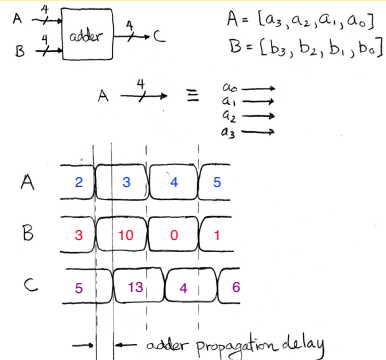 A 4 adder 4 C
B 4
A = [a₃, a₂, a₁, a₀]
B = [b₃, b₂, b₁, b₀]
A 4 ≡ a₀
a₁
a₂
a₃
A 2 3 4 5
B 3 10 0 1
C 5 13 4 6
adder propagation delay